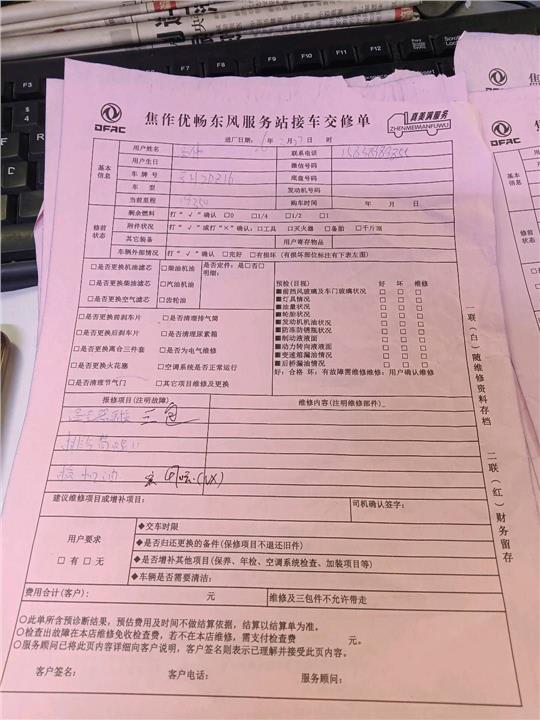 DFAC
焦作优畅东风服务站接车交修单
真美满服务
ZHENMEIMANFUWU
进厂日期: 年 月 27 日 时
基本信息
用户姓名
联系电话
用户生日
微信号码
车牌号
底盘号码
车型
发动机号码
当前里程 19254
购车时间 年 月 日
修前状态
剩余燃料 打“√”确认 □0 □1/4 □1/2 □1
附件状况 打“√”或打“×”确认:□工具 □灭火器 □备胎 □千斤顶
其它装备
用户寄存物品
车辆外部情况 打“√”确认 □完好 □有损坏(有损坏部位标注有下表左图)
□是否更换机油滤芯 □柴油机油
□是否更换柴油滤芯 □汽油机油
□是否更换空气滤芯 □齿轮油
是否定件:是□否□
明细:
□是否更换前刹车片 □是否清理排气筒
□是否更换后刹车片 □是否清理尿素箱
□是否更换离合三件套 □是否为电气维修
□是否更换火花塞 □空调系统是否正常运行
□是否清理节气门 □其它项目维修及更换
预检(目视) 好 坏 维修
■前挡风玻璃及车门玻璃状况 □ □ □
■灯具情况 □ □ □
■油量状况 □ □ □
■轮胎状况 □ □ □
■发动机机油状况 □ □ □
■防冻防锈瓶状况 □ □ □
■制动液液面 □ □ □
■动力转向液液面 □ □ □
■变速箱漏油情况 □ □ □
■后桥漏油情况 □ □ □
好:合格 坏:有故障需维修维修:用户确认维修
报修项目(注明故障)
维修内容(注明维修部件)
三包
建议维修项目或增补项目:
司机确认签字:
用户要求
□有 □无
◆交车时限
◆是否归还更换的备件(保修项目不退还旧件)
◆是否增补其他项目(保养、年检、空调系统检查、加装项目等)
◆车辆是否需要清洁:
费用合计(客户): 元
维修及三包件不允许带走
○此单所含预诊断结果,预估费用及时间不做结算依据,结算以结算单为准。
○检查出故障在本店维修免收检查费,若不在本店维修,需支付检查费 元。
○服务顾问已将此页内容详细向客户说明,客户签名则表示已理解并接受此页内容。
客户签名: 客户电话: 服务顾问:
一联(白)随维修资料存档
二联(红)财务留存